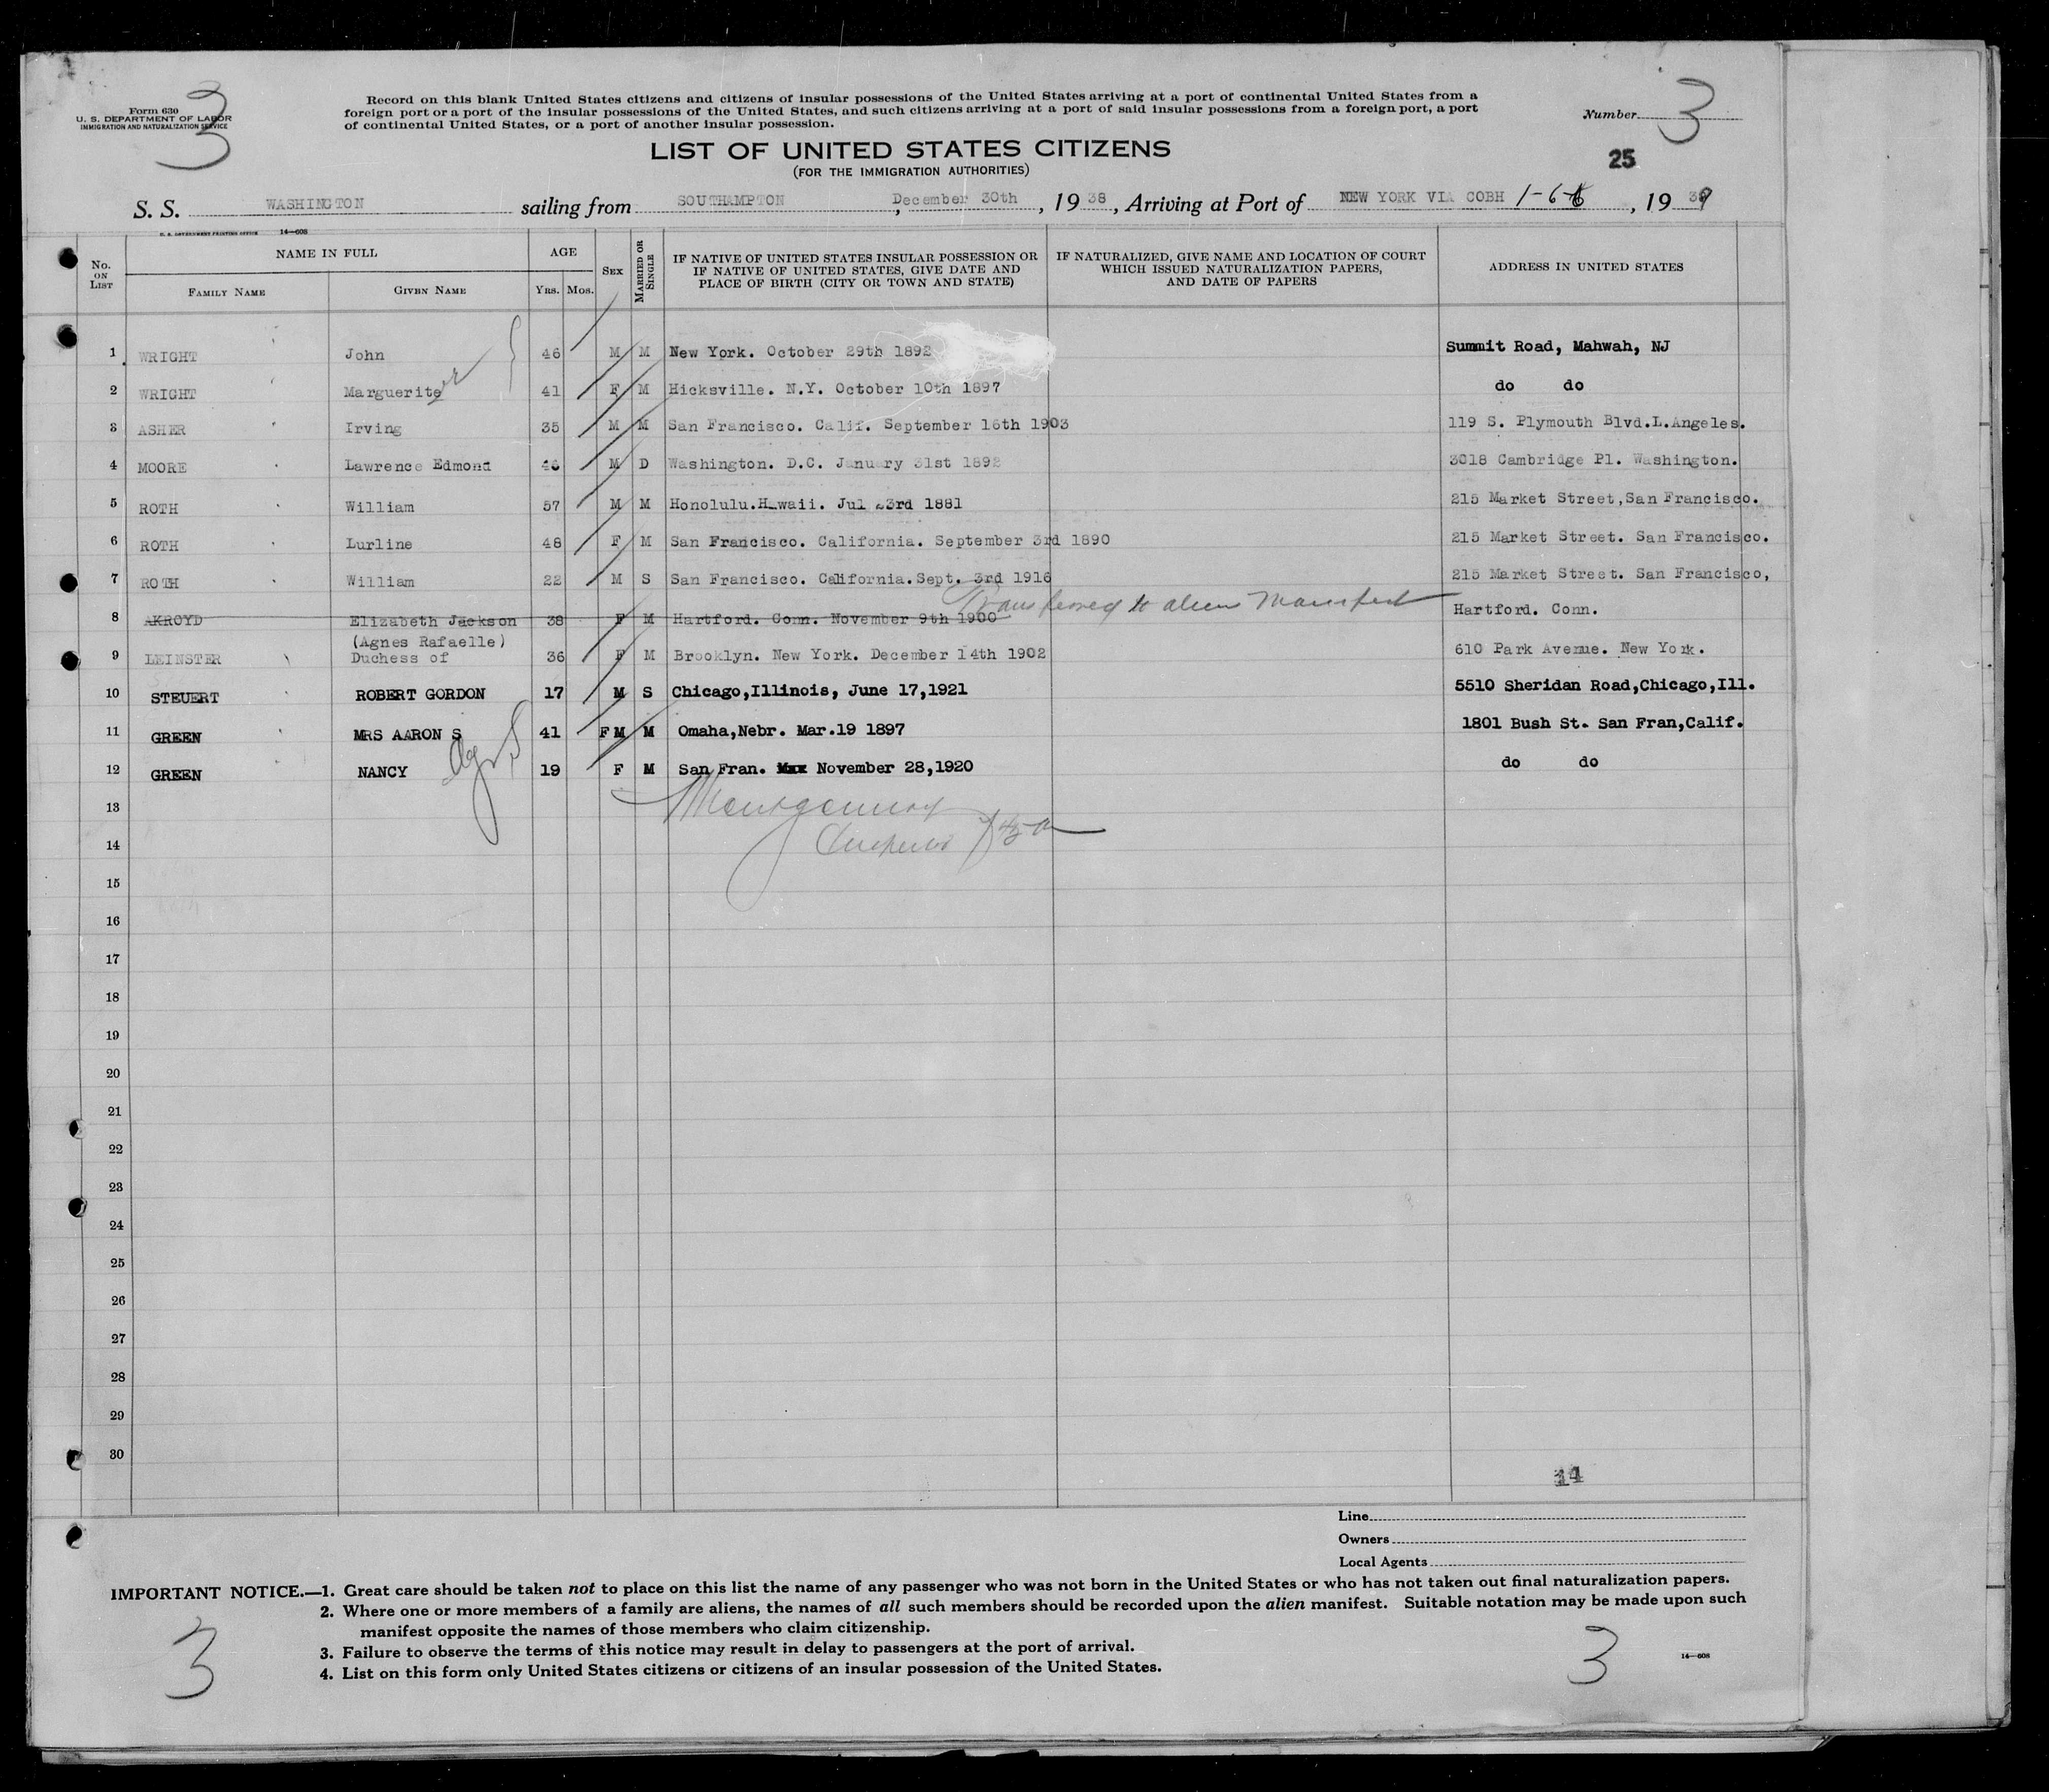 3
Form 630
U. S. DEPARTMENT OF LABOR
IMMIGRATION AND NATURALIZATION SERVICE
Record on this blank United States citizens and citizens of insular possessions of the United States arriving at a port of continental United States from a
foreign port or a port of the insular possessions of the United States, and such citizens arriving at a port of said insular possessions from a foreign port, a port
of continental United States, or a port of another insular possession.
Number 3
LIST OF UNITED STATES CITIZENS
(FOR THE IMMIGRATION AUTHORITIES)
25
S. S. WASHINGTON sailing from SOUTHAMPTON, December 30th, 1938, Arriving at Port of NEW YORK VIA COBH 1-6, 1939
U. S. GOVERNMENT PRINTING OFFICE 14—608
No. ON LIST
NAME IN FULL
FAMILY NAME
GIVEN NAME
AGE
YRS. MOS.
SEX
MARRIED OR SINGLE
IF NATIVE OF UNITED STATES INSULAR POSSESSION OR
IF NATIVE OF UNITED STATES, GIVE DATE AND
PLACE OF BIRTH (CITY OR TOWN AND STATE)
IF NATURALIZED, GIVE NAME AND LOCATION OF COURT
WHICH ISSUED NATURALIZATION PAPERS,
AND DATE OF PAPERS
ADDRESS IN UNITED STATES
1 WRIGHT John 46 M M New York. October 29th 1892 Summit Road, Mahwah, NJ
2 WRIGHT Marguerite 41 F M Hicksville. N.Y. October 10th 1897 do do
3 ASHER Irving 35 M M San Francisco. Calif. September 16th 1903 119 S. Plymouth Blvd.L.Angeles.
4 MOORE Lawrence Edmond 46 M D Washington. D.C. January 31st 1892 3018 Cambridge Pl. Washington.
5 ROTH William 57 M M Honolulu.Hawaii. Jul 23rd 1881 215 Market Street,San Francisco.
6 ROTH Lurline 48 F M San Francisco. California. September 3rd 1890 215 Market Street. San Francisco.
7 ROTH William 22 M S San Francisco. California.Sept. 3rd 1916 215 Market Street. San Francisco,
Transferred to alien Manifest
8 AKROYD Elizabeth Jackson 38 F M Hartford. Conn. November 9th 1900 Hartford. Conn.
(Agnes Rafaelle)
9 LEINSTER Duchess of 36 F M Brooklyn. New York. December 14th 1902 610 Park Avenue. New York.
10 STEUERT ROBERT GORDON 17 M S Chicago,Illinois, June 17,1921 5510 Sheridan Road,Chicago,Ill.
11 GREEN MRS AARON S 41 F M M Omaha,Nebr. Mar.19 1897 1801 Bush St. San Fran,Calif.
12 GREEN NANCY 19 F M San Fran. November 28,1920 do do
13 Montgomery
14 Inspector
15
16
17
18
19
20
21
22
23
24
25
26
27
28
29
30
14
Line
Owners
Local Agents
IMPORTANT NOTICE.—1. Great care should be taken not to place on this list the name of any passenger who was not born in the United States or who has not taken out final naturalization papers.
2. Where one or more members of a family are aliens, the names of all such members should be recorded upon the alien manifest. Suitable notation may be made upon such
manifest opposite the names of those members who claim citizenship.
3. Failure to observe the terms of this notice may result in delay to passengers at the port of arrival.
4. List on this form only United States citizens or citizens of an insular possession of the United States.
3
3
14—608